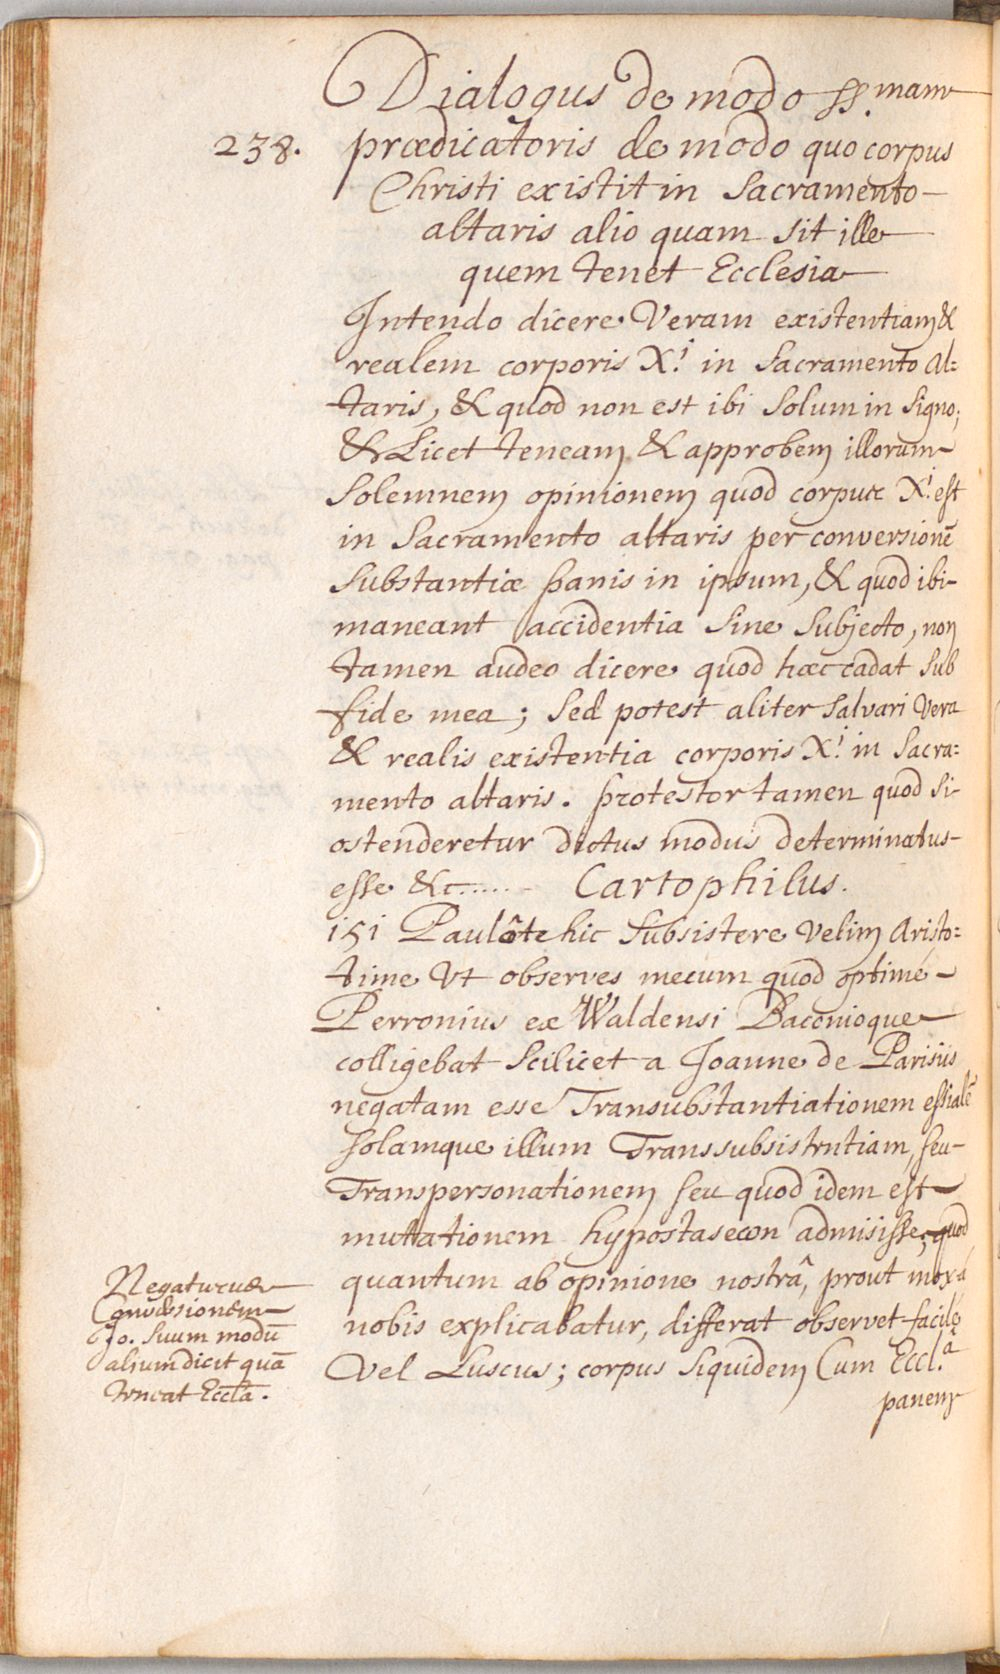 Dialogus de modo ss.mam
238.
prædicatoris de modo quo corpus
Christi existit in Sacramento
altaris alio quam sit ille
quem tenet Ecclesia
Intendo dicere Veram existentiam &
realem corporis X.i in Sacramento Al=
taris, & quod non est ibi Solum in Signo;
& Licet teneam & approbem illorum
Solemnem opinionem quod corpus X.i est
in Sacramento altaris per conversionē
Substantiæ panis in ipsum, & quod ibi
maneant accidentia Sine Subjecto, non
tamen audeo dicere quod hæc cadat Sub
fide mea; Sed potest aliter Salvari Vera
& realis existentia corporis X.i in Sacra=
mento altaris. Protestor tamen quod Si
ostenderetur dictus modus determinatus
esse &c...... Cartophilus.
151 Paulôte hic Subsistere Velim Aristo=
time Vt observes mecum quod optime
Perronius ex Waldensi Baconioque
colligebat Scilicet a Joanne de Parisiis
negatam esse Transubstantiationem essialē
solamque illum Transsubsistentiam, seu
Transpersonationem seu quod idem est
mutationem hypostaseωn admisisse, quod
quantum ab opinione nostrâ, prout mox a
nobis explicabatur, differat observet facile
Vel Luscus; corpus Siquidem Cum Eccl.a
panem
Negaturus
Conversionem
Jo. Suum modū
alium dicit quā
teneat Eccl̄a.